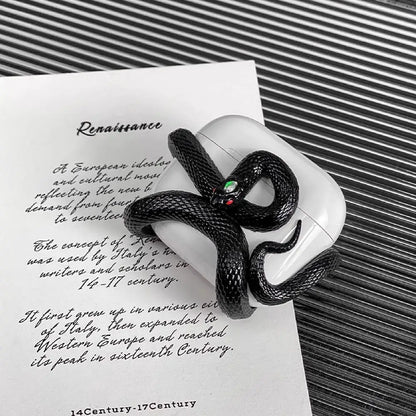 Renaissance
A European ideolog
and cultural mov
reflecting the new
demand from four
to sevente
The concept of
was used by Italy's
writers and scholars in
14-17 century.
It first grew up in various
of Italy, then expanded to
Western Europe and reached
its peak in sixteenth Century.
14Century-17Century